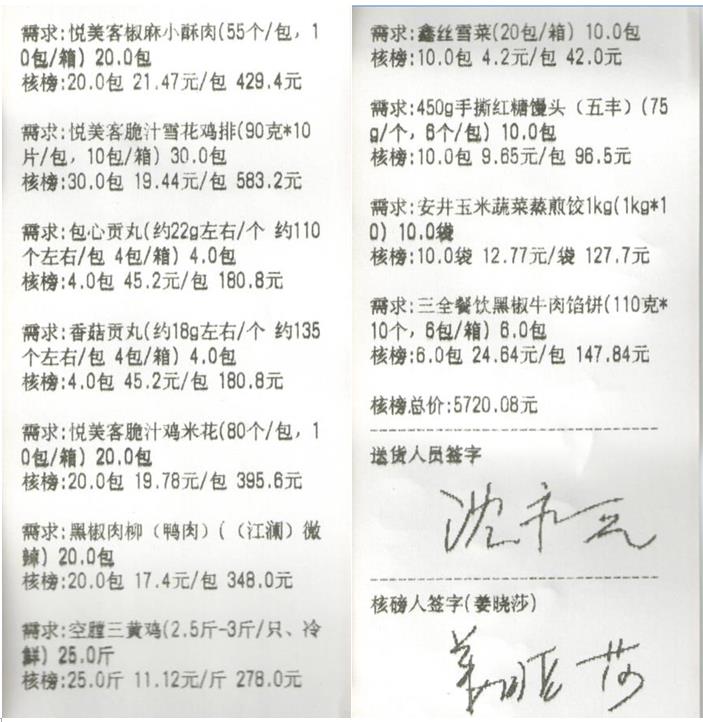 需求:悦美客椒麻小酥肉(55个/包，1
0包/箱) 20.0包
核榜:20.0包 21.47元/包 429.4元
需求:悦美客脆汁雪花鸡排(90克*10
片/包，10包/箱) 30.0包
核榜:30.0包 19.44元/包 583.2元
需求:包心贡丸(约22g左右/个 约110
个左右/包 4包/箱) 4.0包
核榜:4.0包 45.2元/包 180.8元
需求:香菇贡丸(约18g左右/个 约135
个左右/包 4包/箱) 4.0包
核榜:4.0包 45.2元/包 180.8元
需求:悦美客脆汁鸡米花(80个/包，1
0包/箱) 20.0包
核榜:20.0包 19.78元/包 395.6元
需求:黑椒肉柳（鸭肉）(（江澜）微
辣) 20.0包
核榜:20.0包 17.4元/包 348.0元
需求:空膛三黄鸡(2.5斤-3斤/只、冷
鲜) 25.0斤
核榜:25.0斤 11.12元/斤 278.0元
需求:鑫丝雪菜(20包/箱) 10.0包
核榜:10.0包 4.2元/包 42.0元
需求:450g手撕红糖馒头（五丰）(75
g/个，6个/包) 10.0包
核榜:10.0包 9.65元/包 96.5元
需求:安井玉米蔬菜蒸煎饺1kg(1kg*1
0) 10.0袋
核榜:10.0袋 12.77元/袋 127.7元
需求:三全餐饮黑椒牛肉馅饼(110克*
10个，6包/箱) 6.0包
核榜:6.0包 24.64元/包 147.84元
核榜总价:5720.08元
送货人员签字
沈永元
核磅人签字(姜晓莎)
姜晓莎